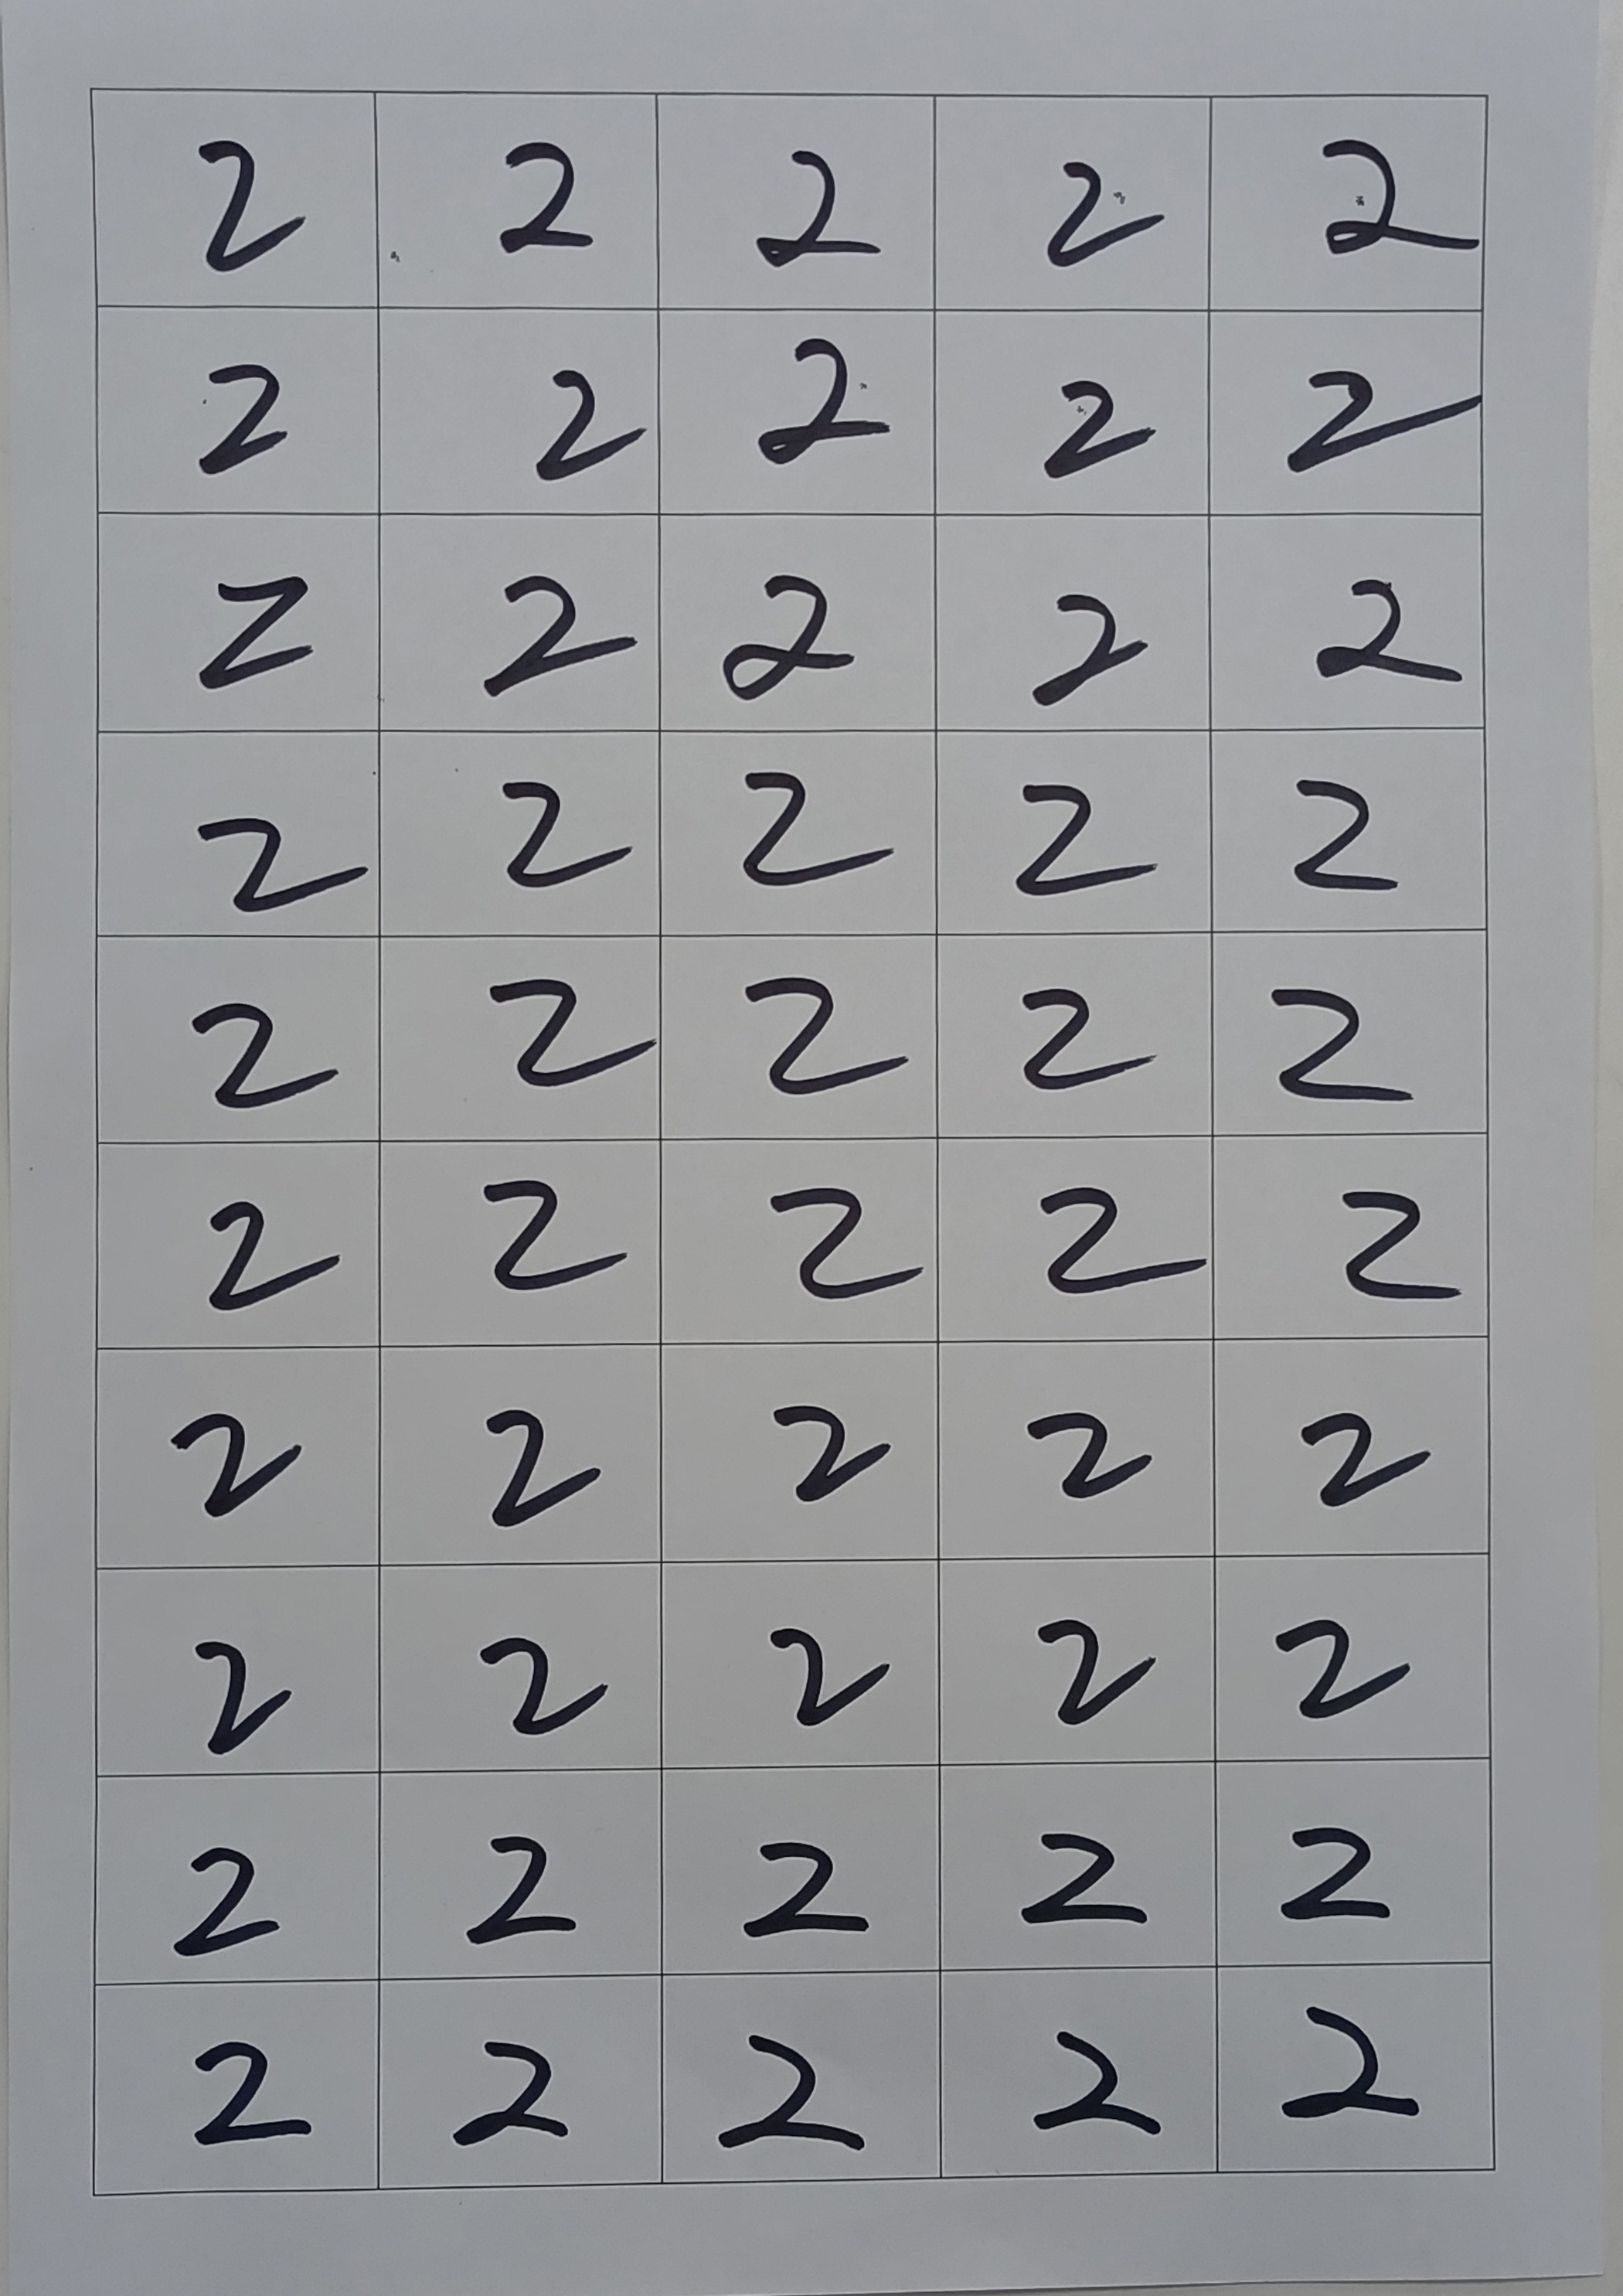 2 2 2 2 2
2 2 2 2 2
2 2 2 2 2
2 2 2 2 2
2 2 2 2 2
2 2 2 2 2
2 2 2 2 2
2 2 2 2 2
2 2 2 2 2
2 2 2 2 2